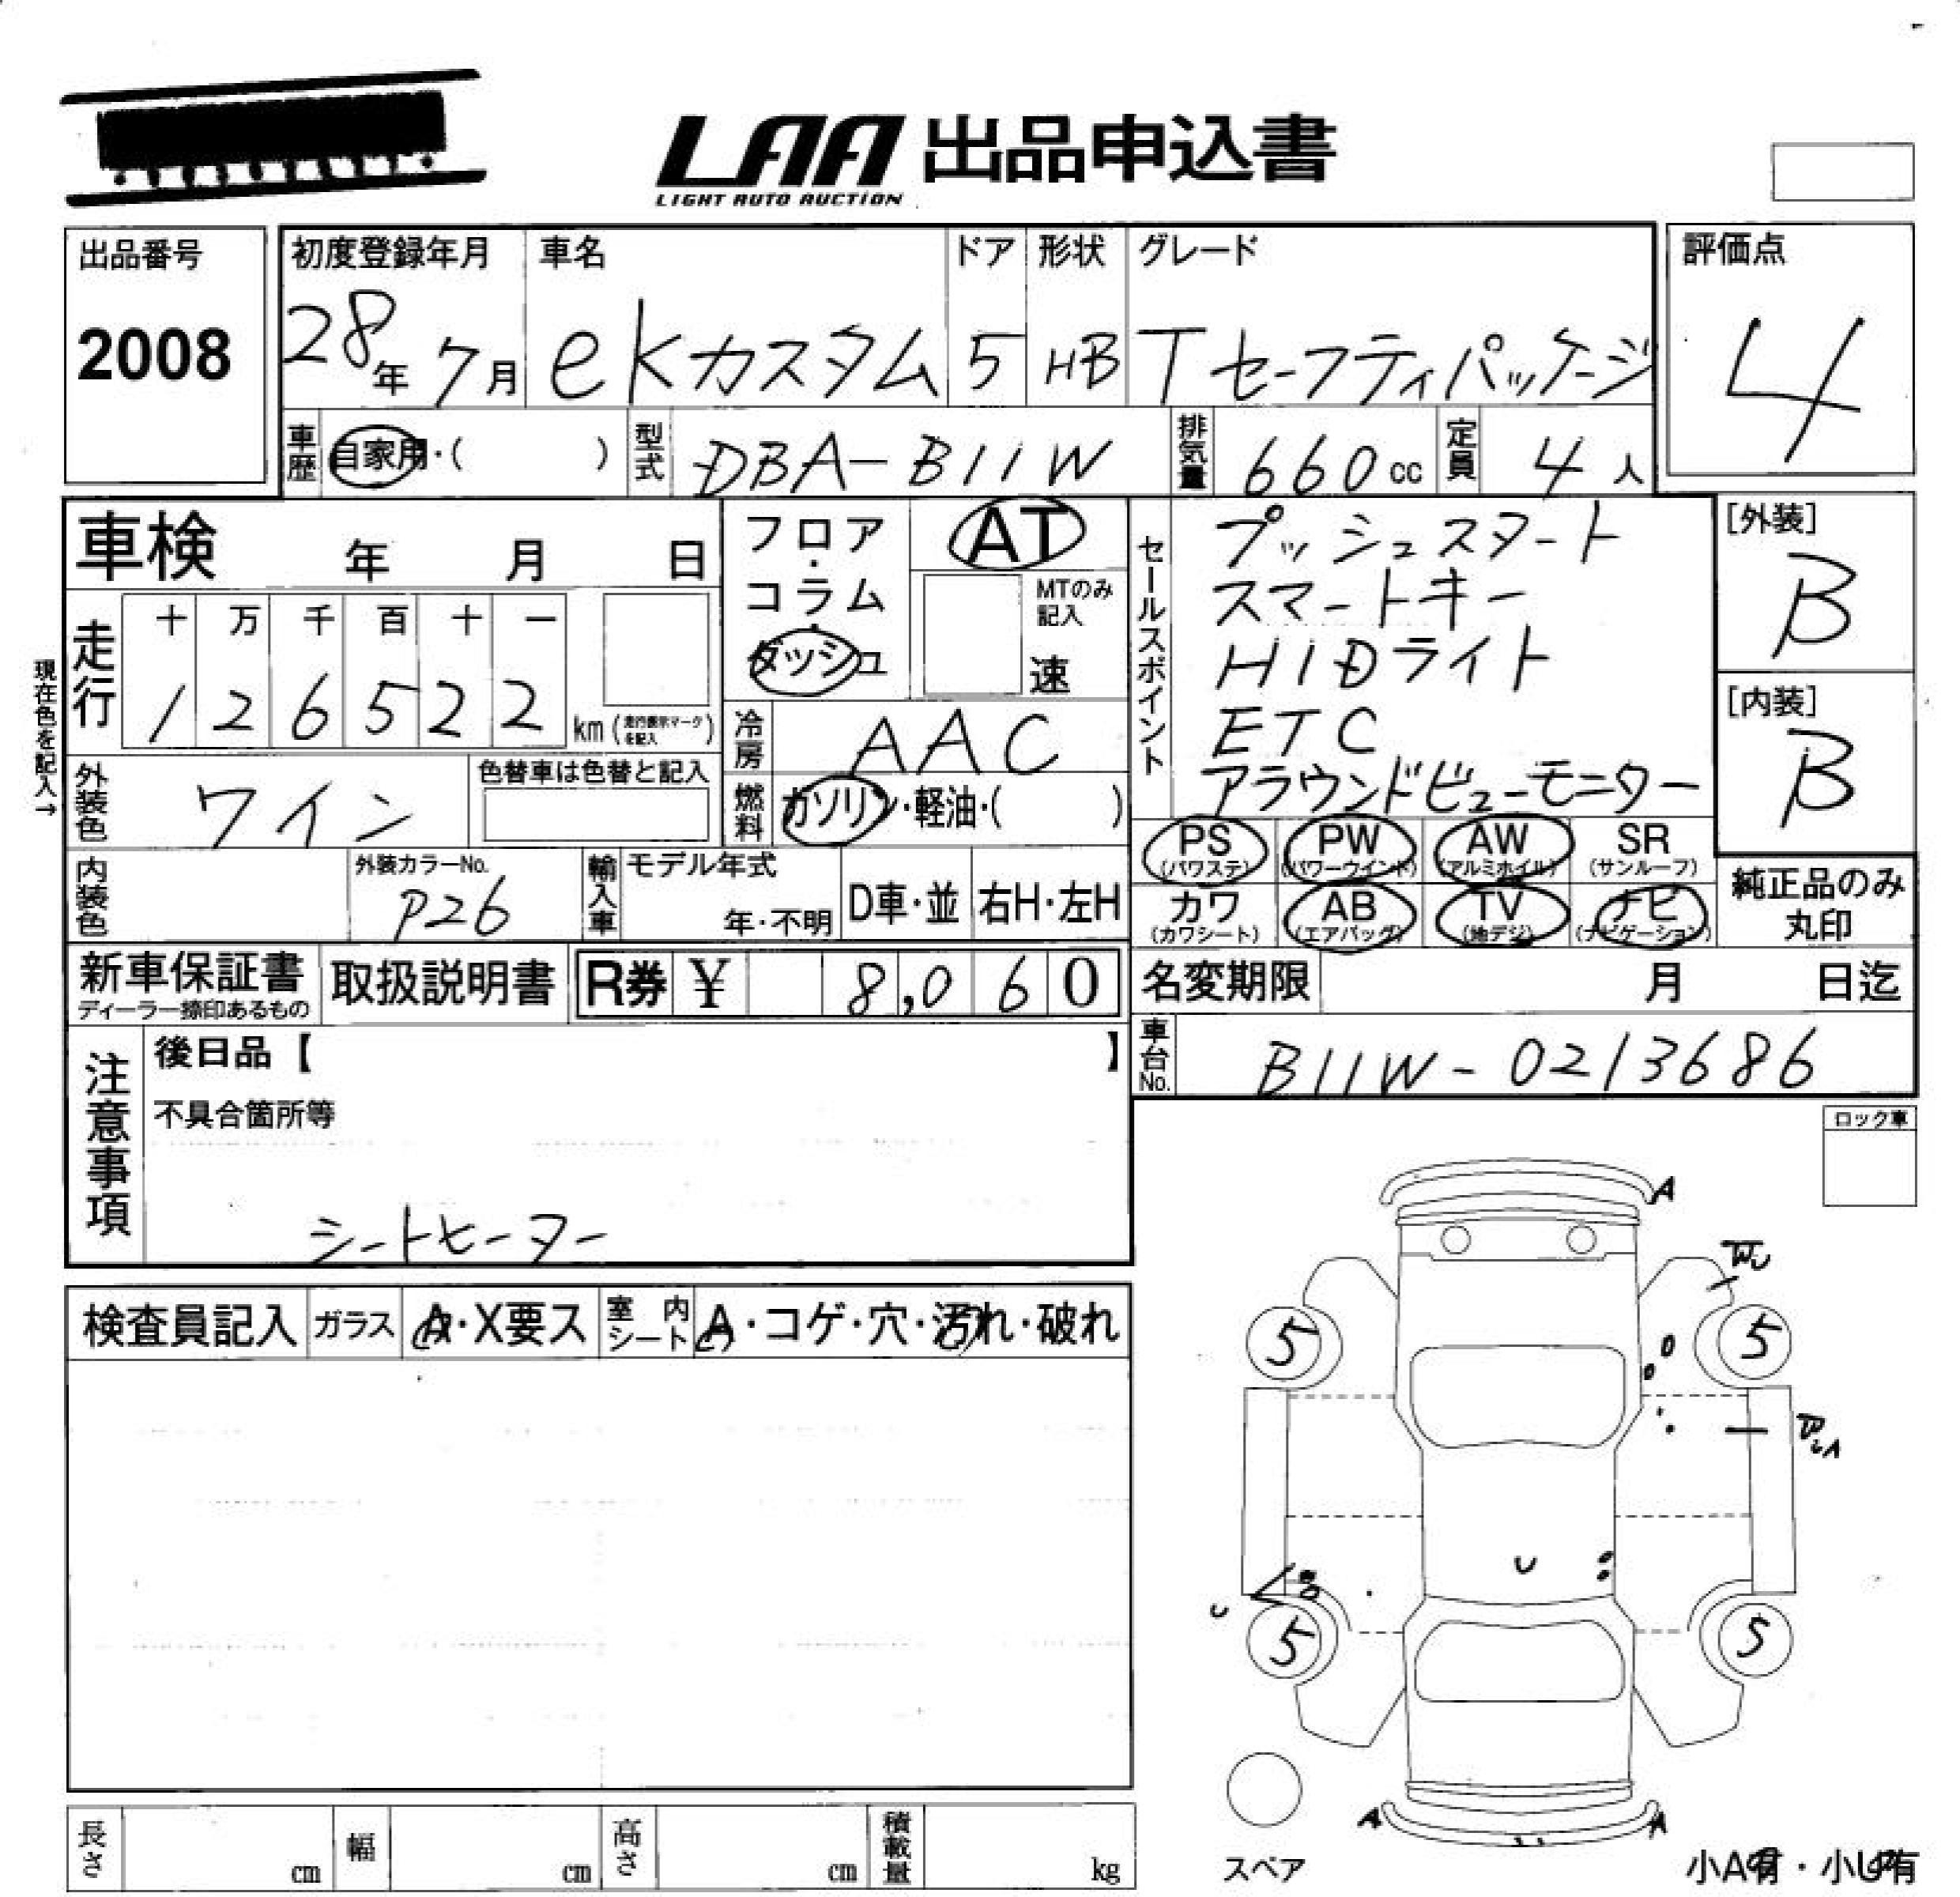 LAA 出品申込書
LIGHT AUTO AUCTION
出品番号
2008
初度登録年月 車名 ドア 形状 グレード
28年 7月 eKカスタム 5 HB Tセーフティパッケージ
評価点
4
車歴 自家用・( ) 型式 DBA-B11W 排気量 660cc 定員 4人
車検 年 月 日
フロア・コラム・ダッシュ
AT
MTのみ記入
速
セールスポイント
プッシュスタート
スマートキー
HIDライト
ETC
アラウンドビューモニター
[外装]
B
[内装]
B
現在色を記入→
走行 十 万 千 百 十 一
1 2 6 5 2 2 km (走行表示マークを記入)
冷房 AAC
外装色 ワイン 色替車は色替と記入
燃料 ガソリン・軽油・( )
PS (パワステ) PW (パワーウインド) AW (アルミホイル) SR (サンルーフ)
カワ (カワシート) AB (エアバッグ) TV (地デジ) ナビ (ナビゲーション)
純正品のみ丸印
内装色 外装カラーNo. P26
輸入車 モデル年式 年・不明 D車・並 右H・左H
新車保証書 ディーラー捺印あるもの
取扱説明書
R券 ¥ 8,060
名変期限 月 日迄
車台No. B11W-0213686
注意事項
後日品【 】
不具合箇所等
シートヒーター
ロック車
検査員記入 ガラス A・X要ス 室内シート A・コゲ・穴・汚れ・破れ
A
W
5 5
U
U
5 5
A A
スペア
小A有・小U有
長さ cm 幅 cm 高さ cm 積載量 kg